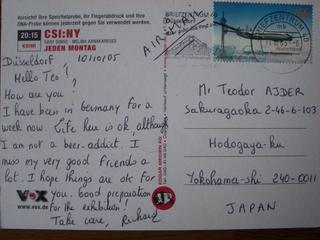 Vorsicht! Ihre Speichelprobe, Ihr Fingerabdruck und Ihre
DNA-Probe können jederzeit gegen Sie verwendet werden.
20:15
KRIMI
CSI:NY
GARY SINISE MELINA KANAKAREDES
JEDEN MONTAG
Düsseldorf 10/10/05
Hello Teo!
How are you?
I have been in Germany for a
week now. Life here is ok although
I am not a beer-addict. I
miss my very good friends a
lot. I hope things are ok for
you. Good preparation
for the exhibition!
Take care, Richard
VOX
www.vox.de
BRIEFZENTRUM 40
BRIEFZENTRUM 40
mk
Mr Teodor AJDER
Sakuragaoka 2-46-6-103
Hodogaya-ku
Yokohama-shi 240-0011
JAPAN